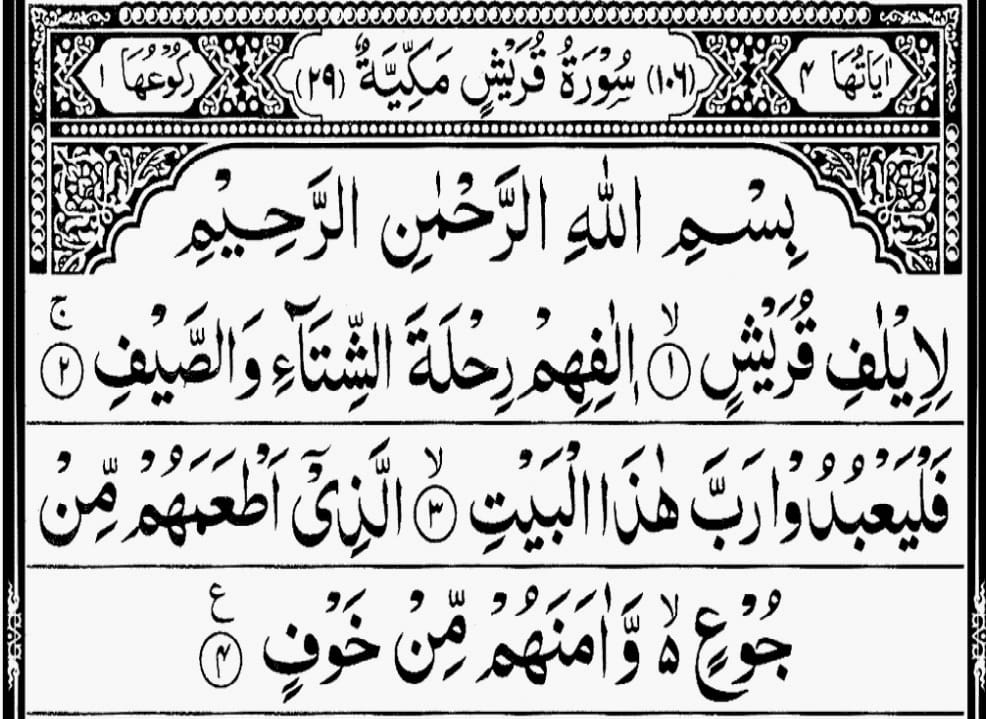 اٰيَاتُهَا ۴ (۱۰۶) سُوْرَةُ قُرَيْشٍ مَكِّيَّةٌ (۲۹) رُكُوْعُهَا ۱
بِسْمِ اللّٰهِ الرَّحْمٰنِ الرَّحِيْمِ
لِاِيْلٰفِ قُرَيْشٍ ۙ‏﴿۱﴾ اٖلٰفِهِمْ رِحْلَةَ الشِّتَآءِ وَالصَّيْفِ ۚ‏﴿۲﴾
فَلْيَعْبُدُوْا رَبَّ هٰذَا الْبَيْتِ ۙ‏﴿۳﴾ الَّذِىْٓ اَطْعَمَهُمْ مِّنْ
جُوْعٍ ۙ۵ وَّاٰمَنَهُمْ مِّنْ خَوْفٍ ‏﴿۴﴾ ع